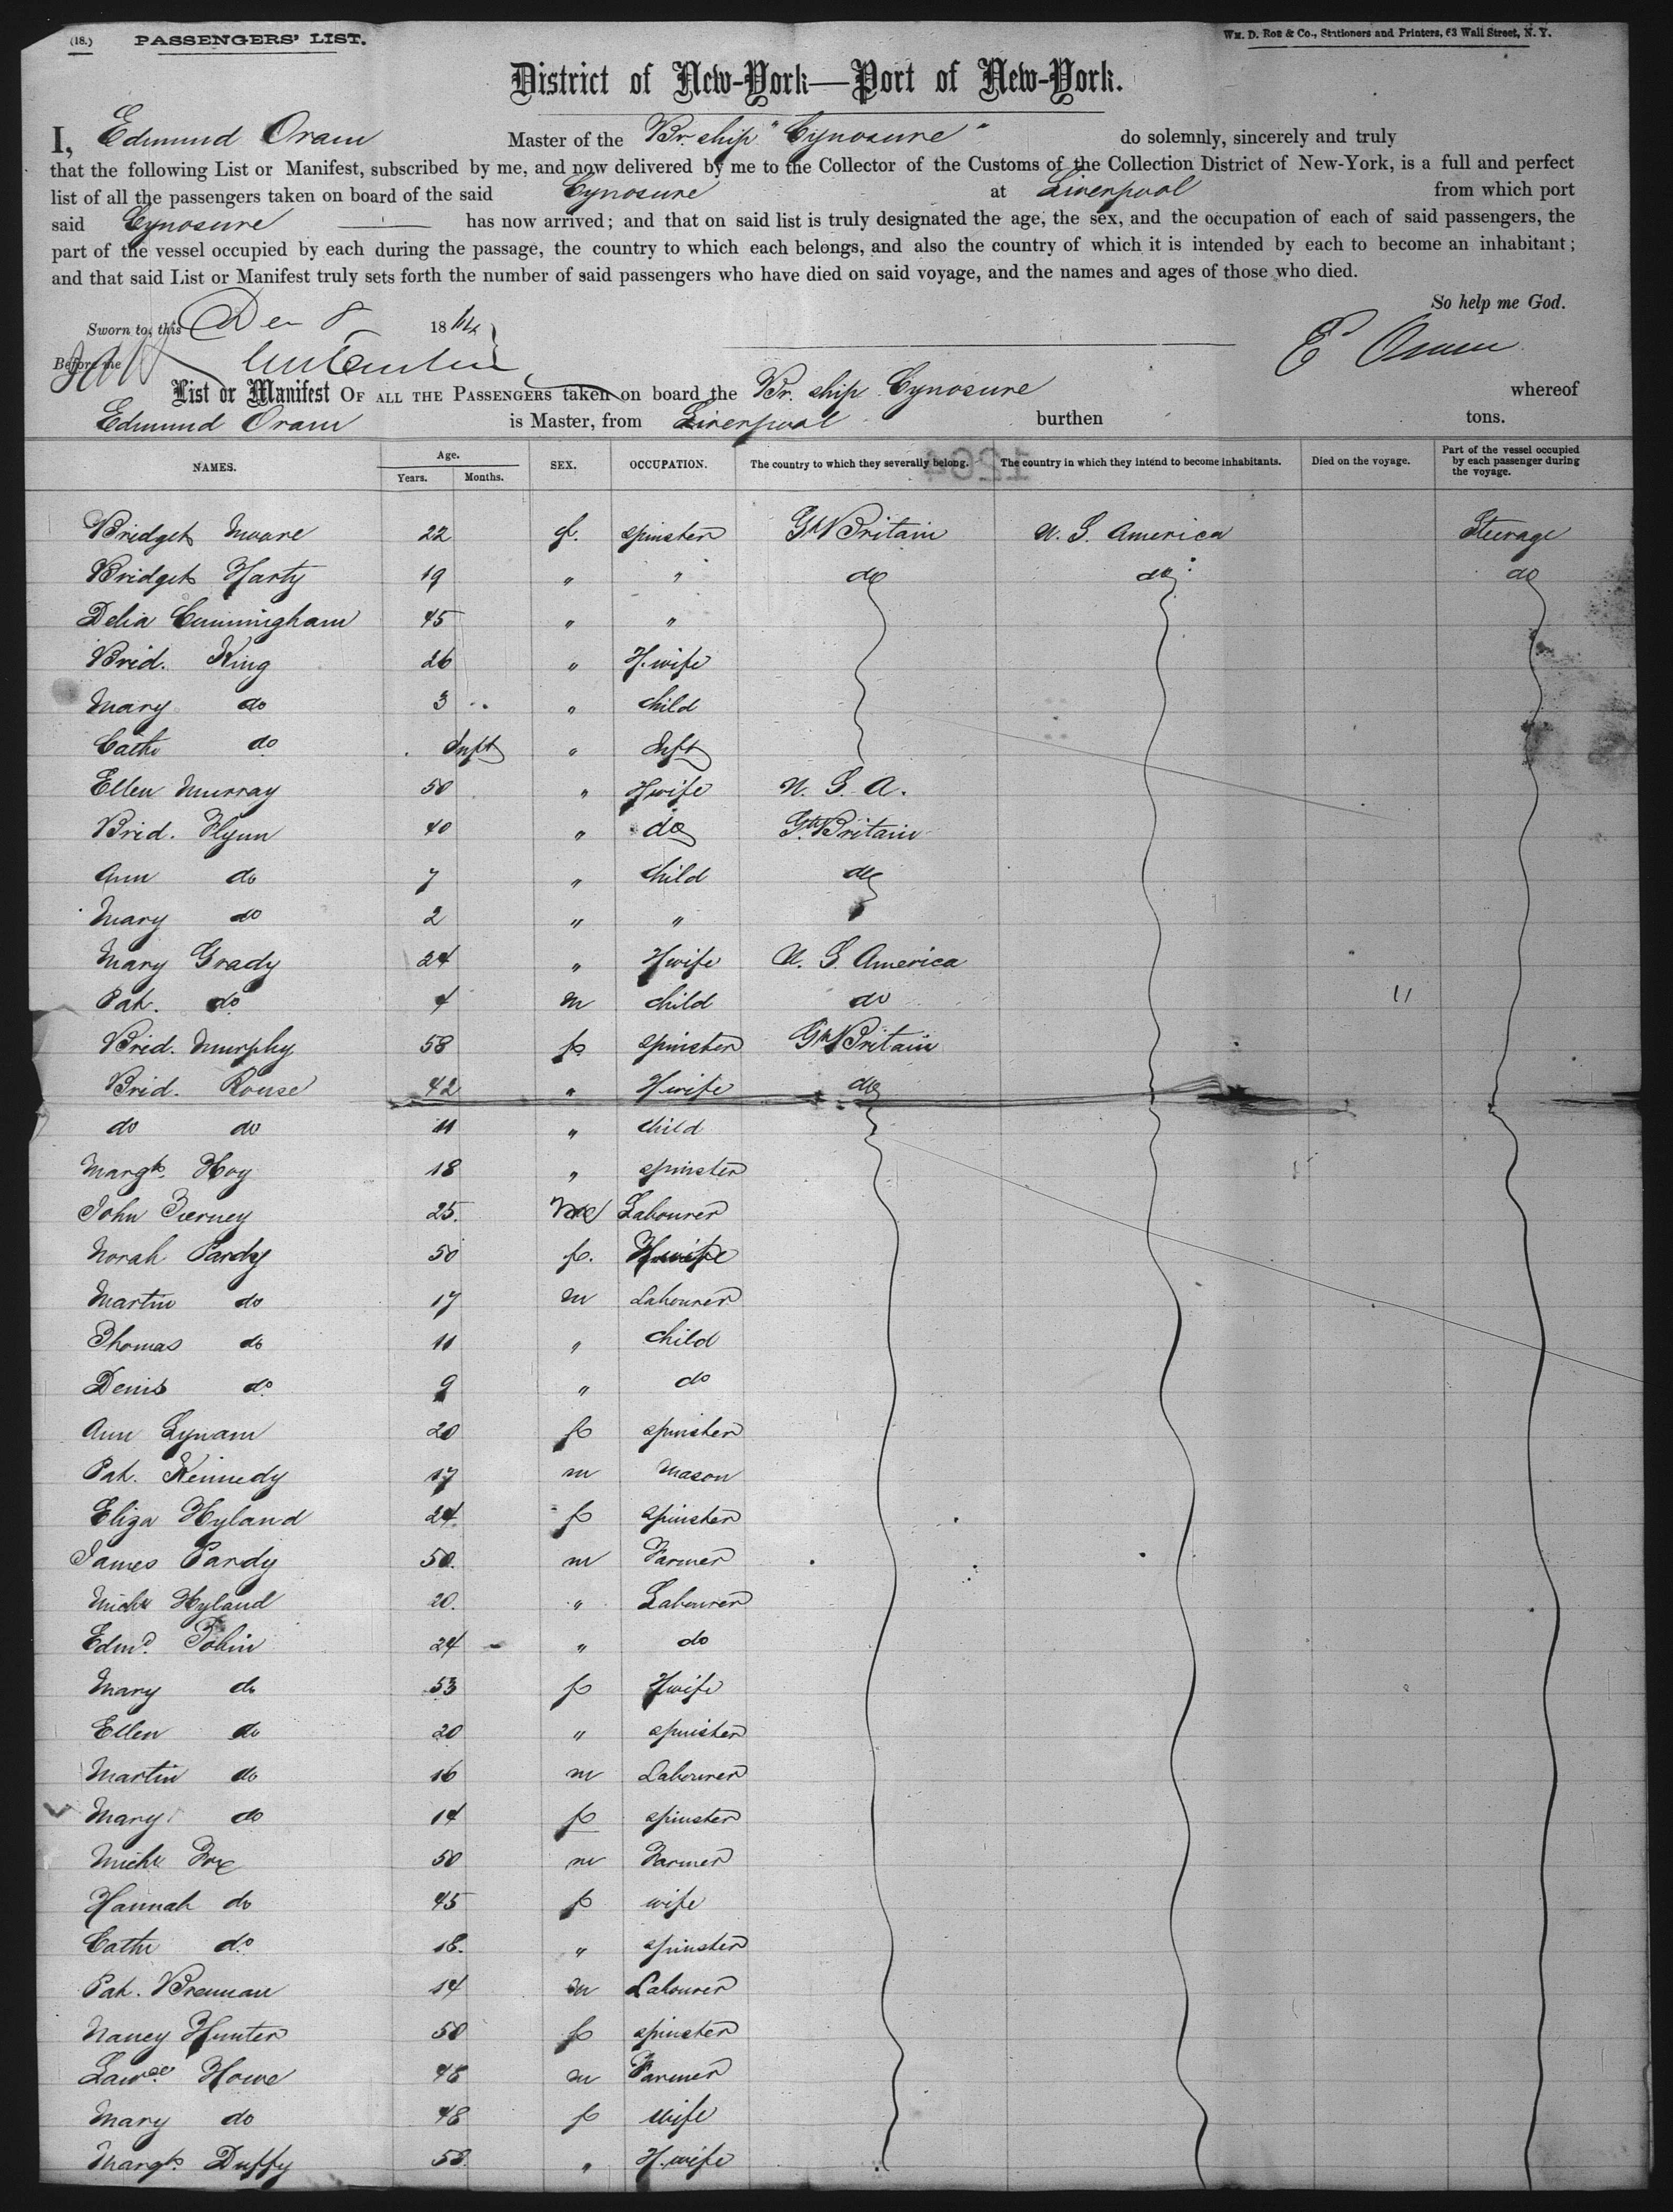 (18.) PASSENGERS' LIST. Wm. D. Roe & Co., Stationers and Printers, 63 Wall Street, N. Y.
District of New-York—Port of New-York.
I, Edmund Oram Master of the Br. ship "Cynosure" do solemnly, sincerely and truly
that the following List or Manifest, subscribed by me, and now delivered by me to the Collector of the Customs of the Collection District of New-York, is a full and perfect
list of all the passengers taken on board of the said Cynosure at Liverpool from which port
said Cynosure has now arrived; and that on said list is truly designated the age, the sex, and the occupation of each of said passengers, the
part of the vessel occupied by each during the passage, the country to which each belongs, and also the country of which it is intended by each to become an inhabitant;
and that said List or Manifest truly sets forth the number of said passengers who have died on said voyage, and the names and ages of those who died.
So help me God.
Sworn to, this Dec 8 1864
Before me E Oram
List or Manifest OF ALL THE PASSENGERS taken on board the Br. ship Cynosure whereof
Edmund Oram is Master, from Liverpool burthen tons.
NAMES. Age. Years. Months. SEX. OCCUPATION. The country to which they severally belong. The country in which they intend to become inhabitants. Died on the voyage. Part of the vessel occupied by each passenger during the voyage.
1264
Bridget Moore 22 f. spinster Gt Britain U. S. America Steerage
Bridget Harty 19 " " do do do
Delia Cunningham 45 " "
Brid. King 26 " H.wife
Mary do 3 " child
Cathe do Inft " Inft
Ellen Murray 50 " Hwife U. S. A.
Brid. Flynn 40 " do Gt Britain
Ann do 7 " child do
Mary do 2 " "
Mary Grady 24 " Hwife U. S. America
Pat. do 4 m child do "
Brid. Murphy 58 f spinster Gt Britain
Brid. Rouse 42 " Hwife do
do do 11 " child
Margt. Hoy 18 " spinster
John Tierney 25. m Labourer
Norah Pardy 50 f. Hwife
Martin do 17 m Labourer
Thomas do 11 " child
Denis do 9 " do
Ann Lynam 20 f spinster
Pat. Kennedy 17 m Mason
Eliza Hyland 24 f spinster
James Pardy 50. m Farmer
Michl Hyland 20. " Labourer
Edmd. Tobin 24 " do
Mary do 53 f Hwife
Ellen do 20 " spinster
Martin do 16 m Labourer
Mary do 14 f spinster
Michl Fox 50 m Farmer
Hannah do 45 f wife
Cathe do 18. " spinster
Pat. Brennan 14 m Labourer
Nancy Hunter 50 f spinster
Lawce Howe 48 m Farmer
Mary do 48 f wife
Margt. Duffy 58. " H.wife